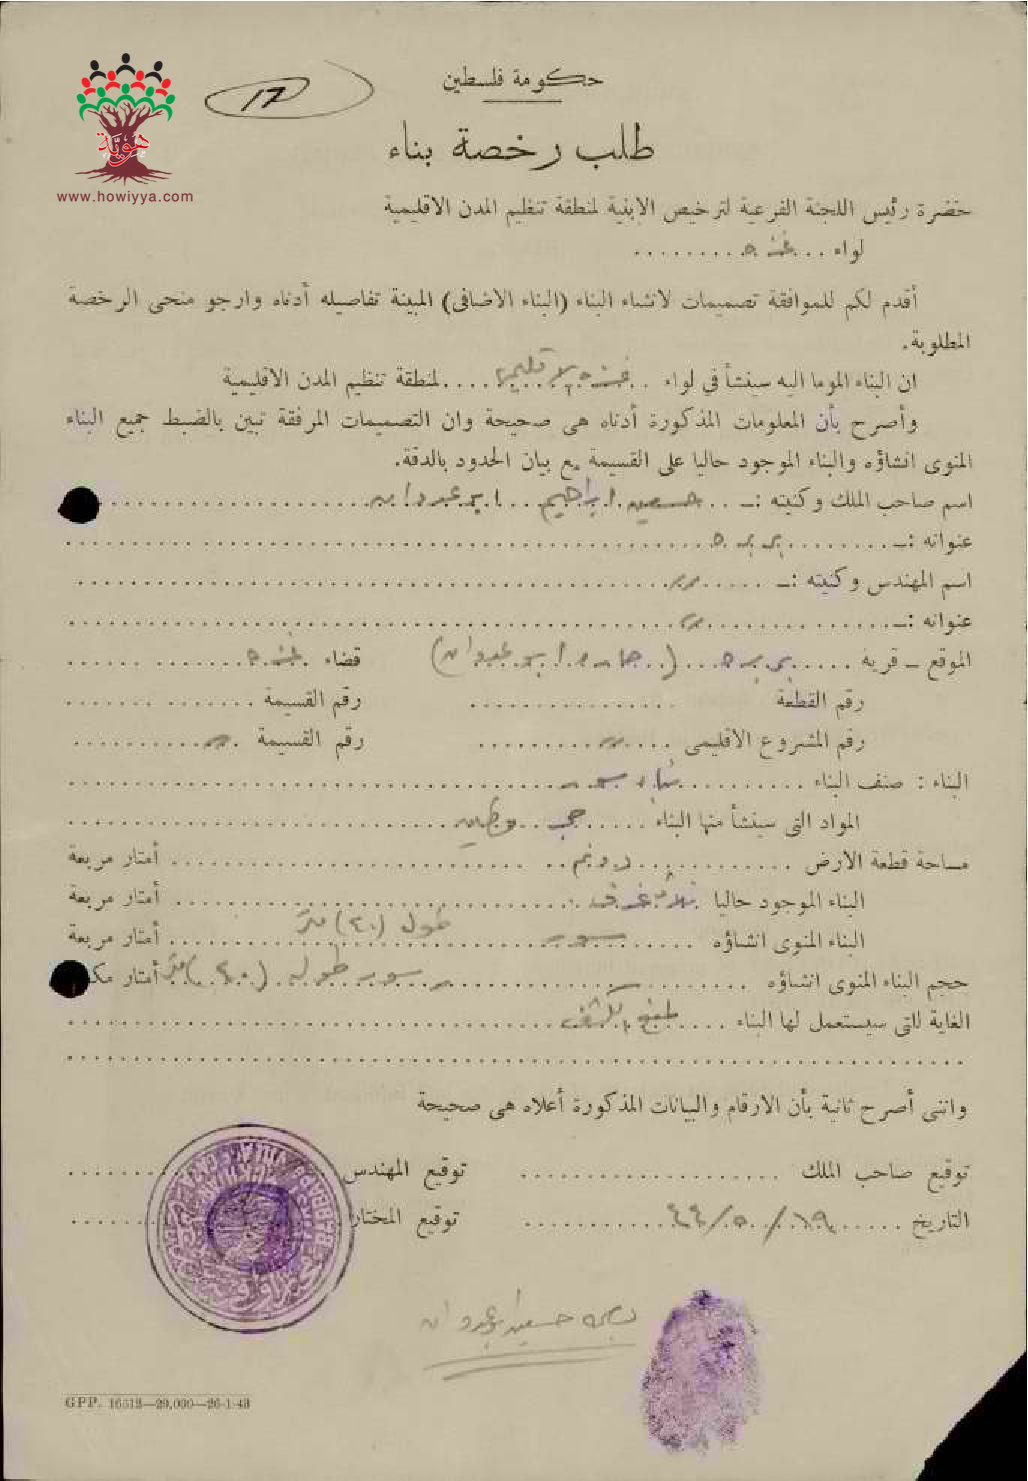 حكومة فلسطين
17
هوية
www.howiyya.com
طلب رخصة بناء
حضرة رئيس اللجنة الفرعية لترخيص الابنية لمنطقة تنظيم المدن الاقليمية
لواء ... غزه .........
أقدم لكم للموافقة تصميمات لانشاء البناء (البناء الاضافى) المبينة تفاصيله أدناه وارجو منحى الرخصة
المطلوبة.
ان البناء الموما اليه سينشأ في لواء .. غزه .... لمنطقة تنظيم المدن الاقليمية
وأصرح بأن المعلومات المذكورة أدناه هى صحيحة وان التصميمات المرفقة تبين بالضبط جميع البناء
المنوى انشاؤه والبناء الموجود حاليا على القسيمة مع بيان الحدود بالدقة.
اسم صاحب الملك وكنيته :ــ .. حسين ابراهيم ... ابو عدوان
عنوانه :ــ ........ بربره
اسم المهندس وكنيته :ــ ...... 〃
عنوانه :ــ .............. 〃
الموقع ــ قرية ..... بربره ... ( حارة ابو عدوان ) قضاء . غزه
رقم القطعة ................ رقم القسيمة ........
رقم المشروع الاقليمى .... 〃 ......... رقم القسيمة . 〃
البناء : صنف البناء .......... بناء سور
المواد التى سينشأ منها البناء ..... حجر وطين
مساحة قطعة الارض ............ دونم .. ........ أمتار مربعة
البناء الموجود حاليا . ثلاث غرف ........ أمتار مربعة
البناء المنوى انشاؤه ...... سور طول (٢٠) متر ........ أمتار مربعة
حجم البناء المنوى انشاؤه ........ سور طوله (٢٠) متر أمتار
الغاية للتى سيستعمل لها البناء ....
واننى أصرح ثانية بأن الارقام والبيانات المذكورة أعلاه هى صحيحة
توقيع صاحب الملك .................... توقيع المهندس ........
التاريخ ...... ١٩ / ٥ / ٤٤ ........... توقيع المختار ........
بصمة حسين ابو عدوان
GPP. 16513—20,000—26-1-43